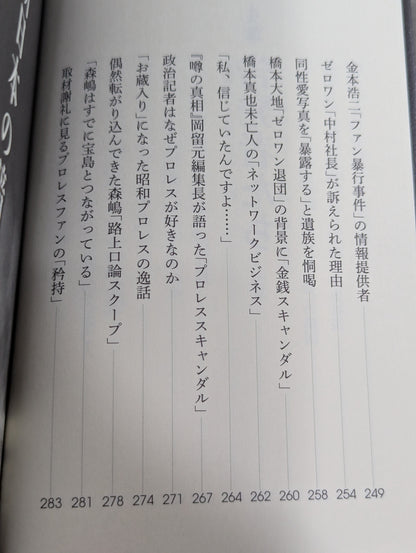 金本浩二「ファン暴行事件」の情報提供者 249
ゼロワン「中村社長」が訴えられた理由 254
同性愛写真を「暴露する」と遺族を恫喝 258
橋本大地「ゼロワン退団」の背景に「金銭スキャンダル」 260
橋本真也未亡人の「ネットワークビジネス」 262
「私、信じていたんですよ……」 264
『噂の真相』岡留元編集長が語った「プロレススキャンダル」 267
政治記者はなぜプロレスが好きなのか 271
「お蔵入り」になった昭和プロレスの逸話 274
偶然転がり込んできた森嶋「路上口論スクープ」 278
「森嶋はすでに宝島とつながっている」 281
取材謝礼に見るプロレスファンの「矜持」 283
日本の